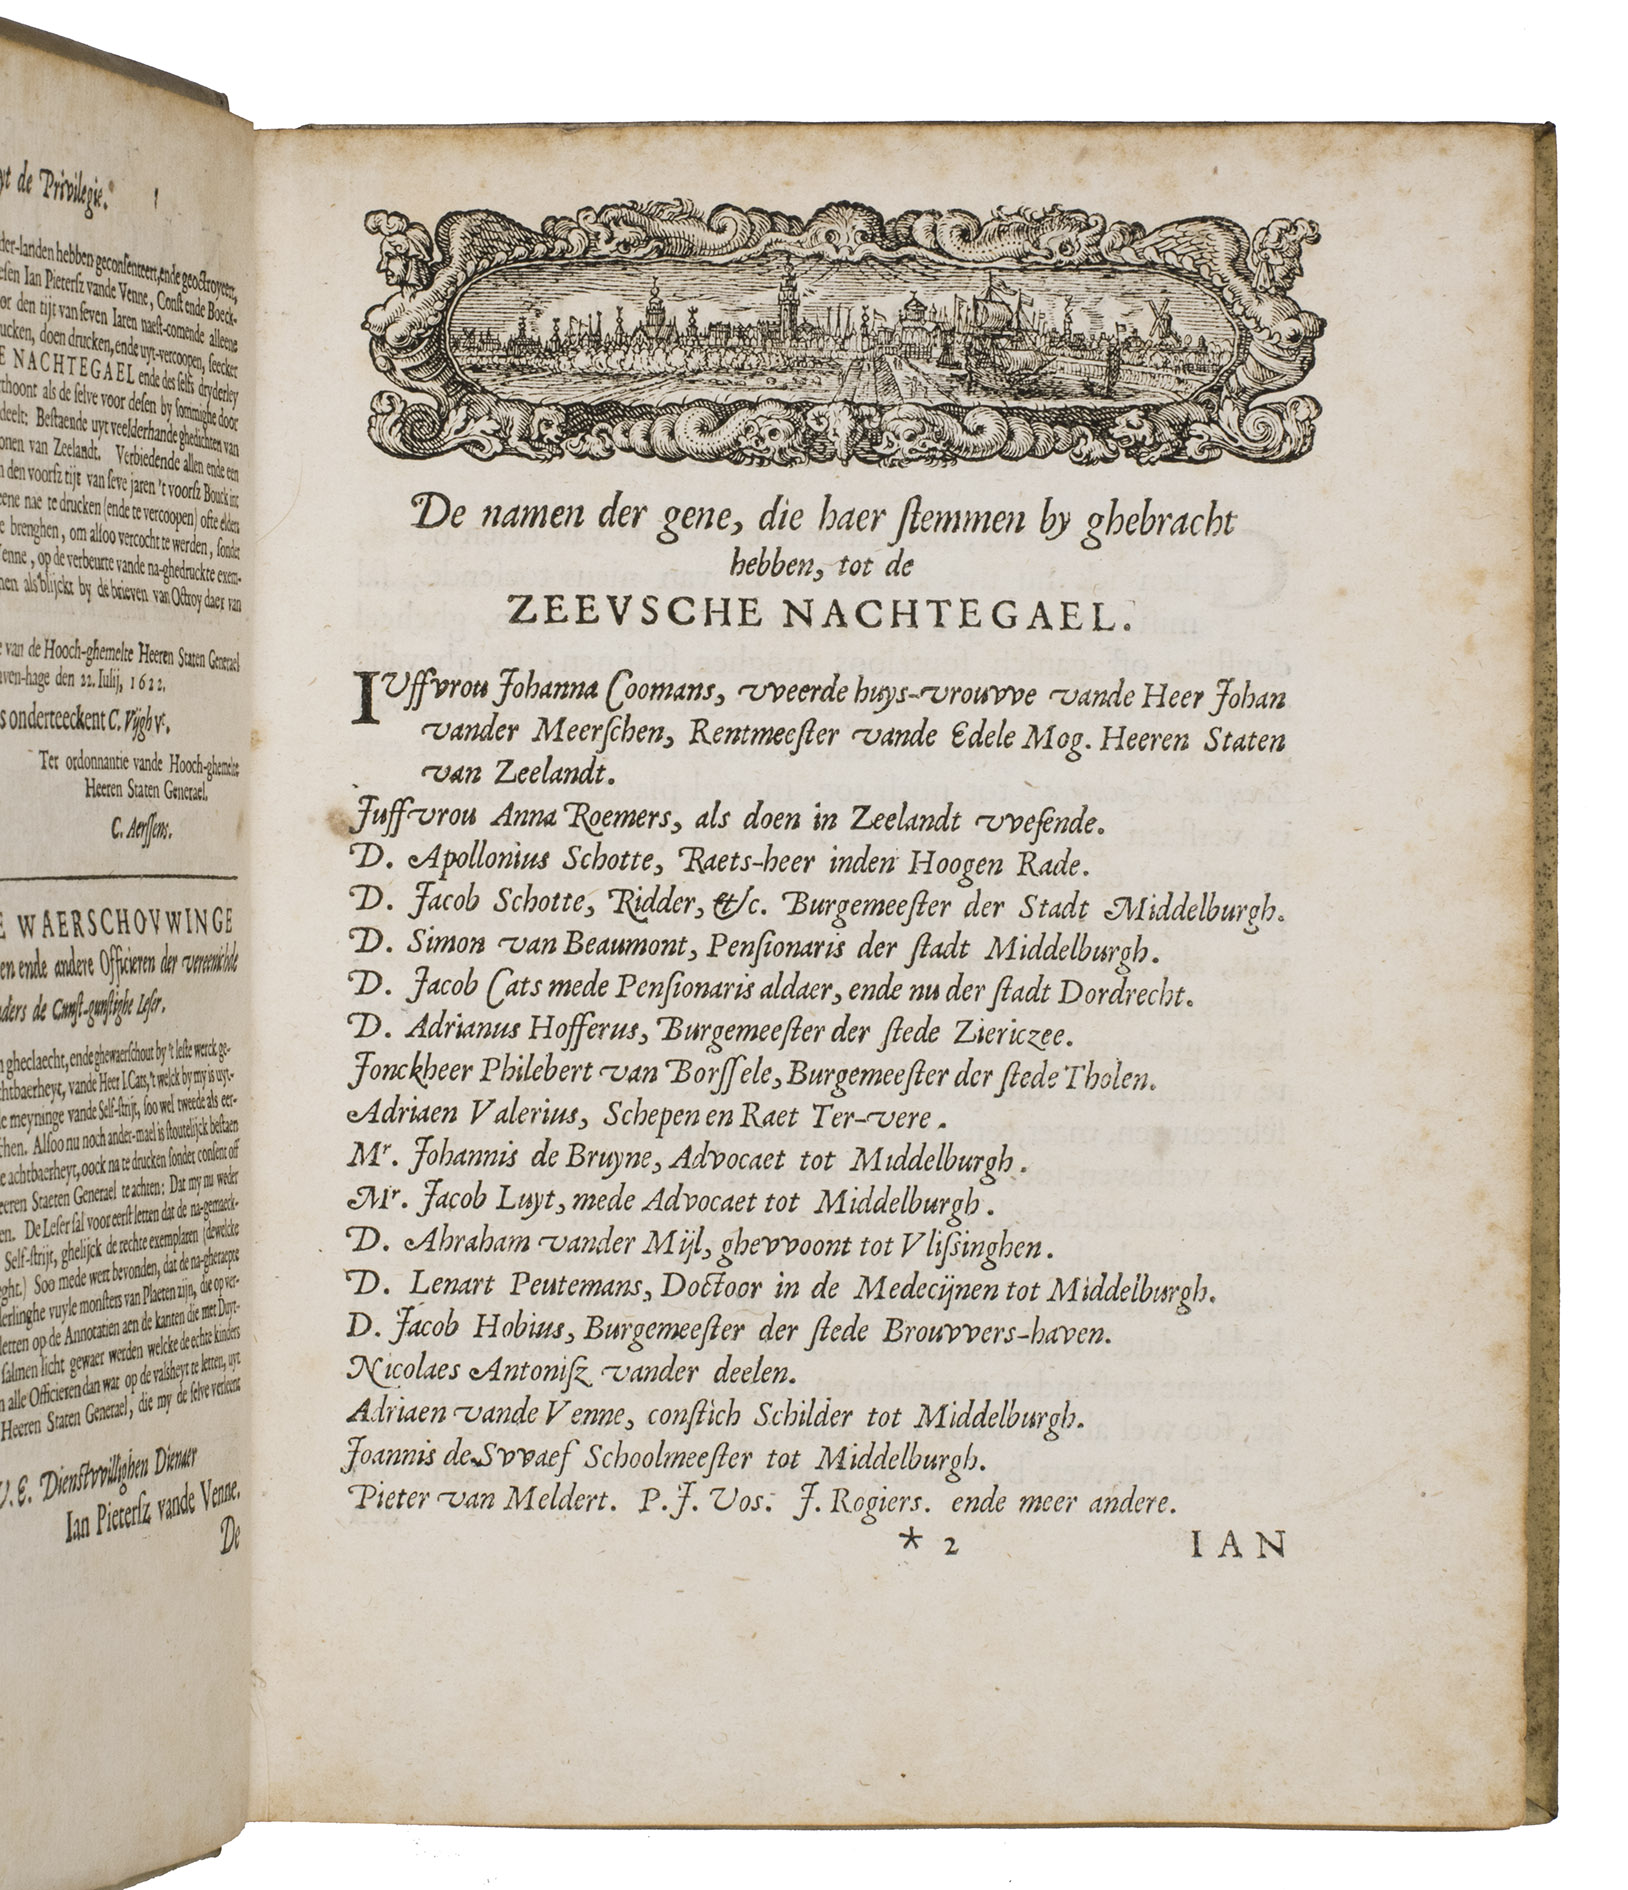 yt de Privilegie.
der-landen hebben geconsenteert, ende geoctroyeert,
Ian Pietersz vande Venne, Const ende Boeck-
or den tijt van seven Iaren naest-comende alleene
ucken, doen drucken, ende uyt-vercoopen, seecker
E NACHTEGAEL ende des selfs dryderley
rthoont als de selve voor desen by sommighe door
deelt: Bestaende uyt veelderhande ghedichten van
onen van Zeelandt. Verbiedende allen ende een
n den voorsz tijt van seve jaren 't voorsz Bouck int
eene nae te drucken (ende te vercoopen) ofte elders
e brenghen, om alsoo vercocht te werden, sonder
Venne, op de verbeurte vande na-ghedruckte exem-
nen als blijckt by de brieven van Octroy daer van
e van de Hooch-ghemelte Heeren Staten Generael
ven-hage den 22. Iulij, 1622.
s onderteeckent C. Vijgh vt.
Ter ordonnantie vande Hooch-ghemelte
Heeren Staten Generael.
C. Aerssens.
E WAERSCHOVWINGE
en ende andere Officieren der vereenichde
nders de Cunst-gunstighe Leser.
n gheclaecht, ende ghewaerschout by 't leste werck ge-
chtbaerheyt, vande Heer I. Cats, 't welck by my is uyt-
e meyninge vande Self-strijt, soo wel tweede als eer-
chen. Alsoo nu noch ander-mael is stoutelijck bestaen
e achtbaerheyt, oock na te drucken sonder consent off
eeren Staeten Generael te achten: Dat my nu weder
en. De Leser sal voor eerst letten dat de na-gemaeck-
Self-strijt, ghelijck de rechte exemplaren (dewelcke
ght.) Soo mede wert bevonden, dat de na-gheraepte
derlinghe vuyle monsters van Plaeten zijn, die op ver-
letten op de Annotatien aen de kanten die met Duyt-
salmen licht gewaer werden welcke de echte kinders
n alle Officieren dan wat op de valsheyt te letten, uyt
Heeren Staten Generael, die my de selve verleent
V. E. Dienstvvillighen Dienaer
Ian Pietersz vande Venne.
De
De namen der gene, die haer stemmen by ghebracht
hebben, tot de
ZEEVSCHE NACHTEGAEL.
IVffvrou Johanna Coomans, vveerde huys-vrouvve vande Heer Johan
vander Meerschen, Rentmeester vande Edele Mog. Heeren Staten
van Zeelandt.
Juffvrou Anna Roemers, als doen in Zeelandt vvesende.
D. Apollonius Schotte, Raets-heer inden Hoogen Rade.
D. Jacob Schotte, Ridder, &c. Burgemeester der Stadt Middelburgh.
D. Simon van Beaumont, Pensionaris der stadt Middelburgh.
D. Jacob Cats mede Pensionaris aldaer, ende nu der stadt Dordrecht.
D. Adrianus Hofferus, Burgemeester der stede Ziericzee.
Jonckheer Philebert van Borssele, Burgemeester der stede Tholen.
Adriaen Valerius, Schepen en Raet Ter-vere.
Mr. Johannis de Bruyne, Advocaet tot Middelburgh.
Mr. Jacob Luyt, mede Advocaet tot Middelburgh.
D. Abraham vander Mijl, ghevvoont tot Vlissinghen.
D. Lenart Peutemans, Doctoor in de Medecijnen tot Middelburgh.
D. Jacob Hobius, Burgemeester der stede Brouvvers-haven.
Nicolaes Antonisz vander deelen.
Adriaen vande Venne, constich Schilder tot Middelburgh.
Joannis de Svvaef Schoolmeester tot Middelburgh.
Pieter van Meldert. P. J. Vos. J. Rogiers. ende meer andere.
* 2 IAN